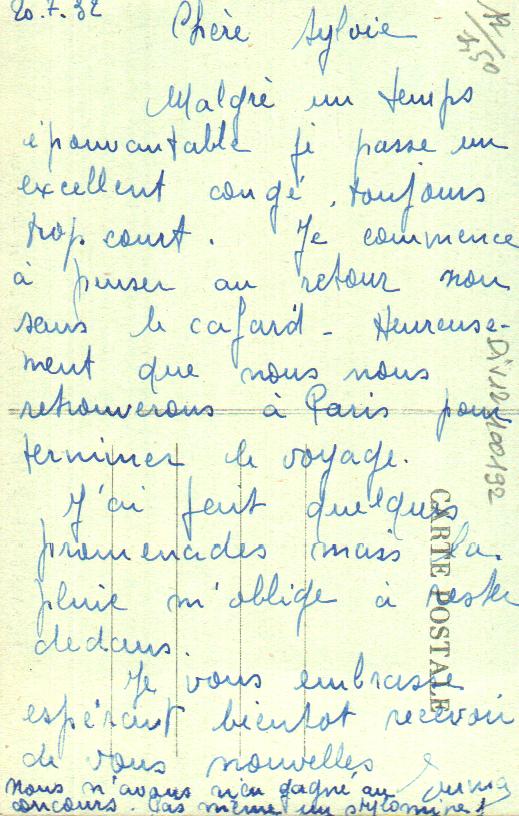 20.7.32
Chère Sylvie
Malgré un temps
épouvantable je passe un
excellent congé, toujours
trop court. Je commence
à penser au retour non
sans le cafard - Heureuse-
ment que nous nous
retrouverons à Paris pour
terminer le voyage.
J'ai fait quelques
promenades mais la
pluie m'oblige à rester
dedans.
Je vous embrasse
espérant bientot recevoir
de vous nouvelles
nous n'avons rien gagné au
concours. Pas même un stylomine!
CARTE POSTALE